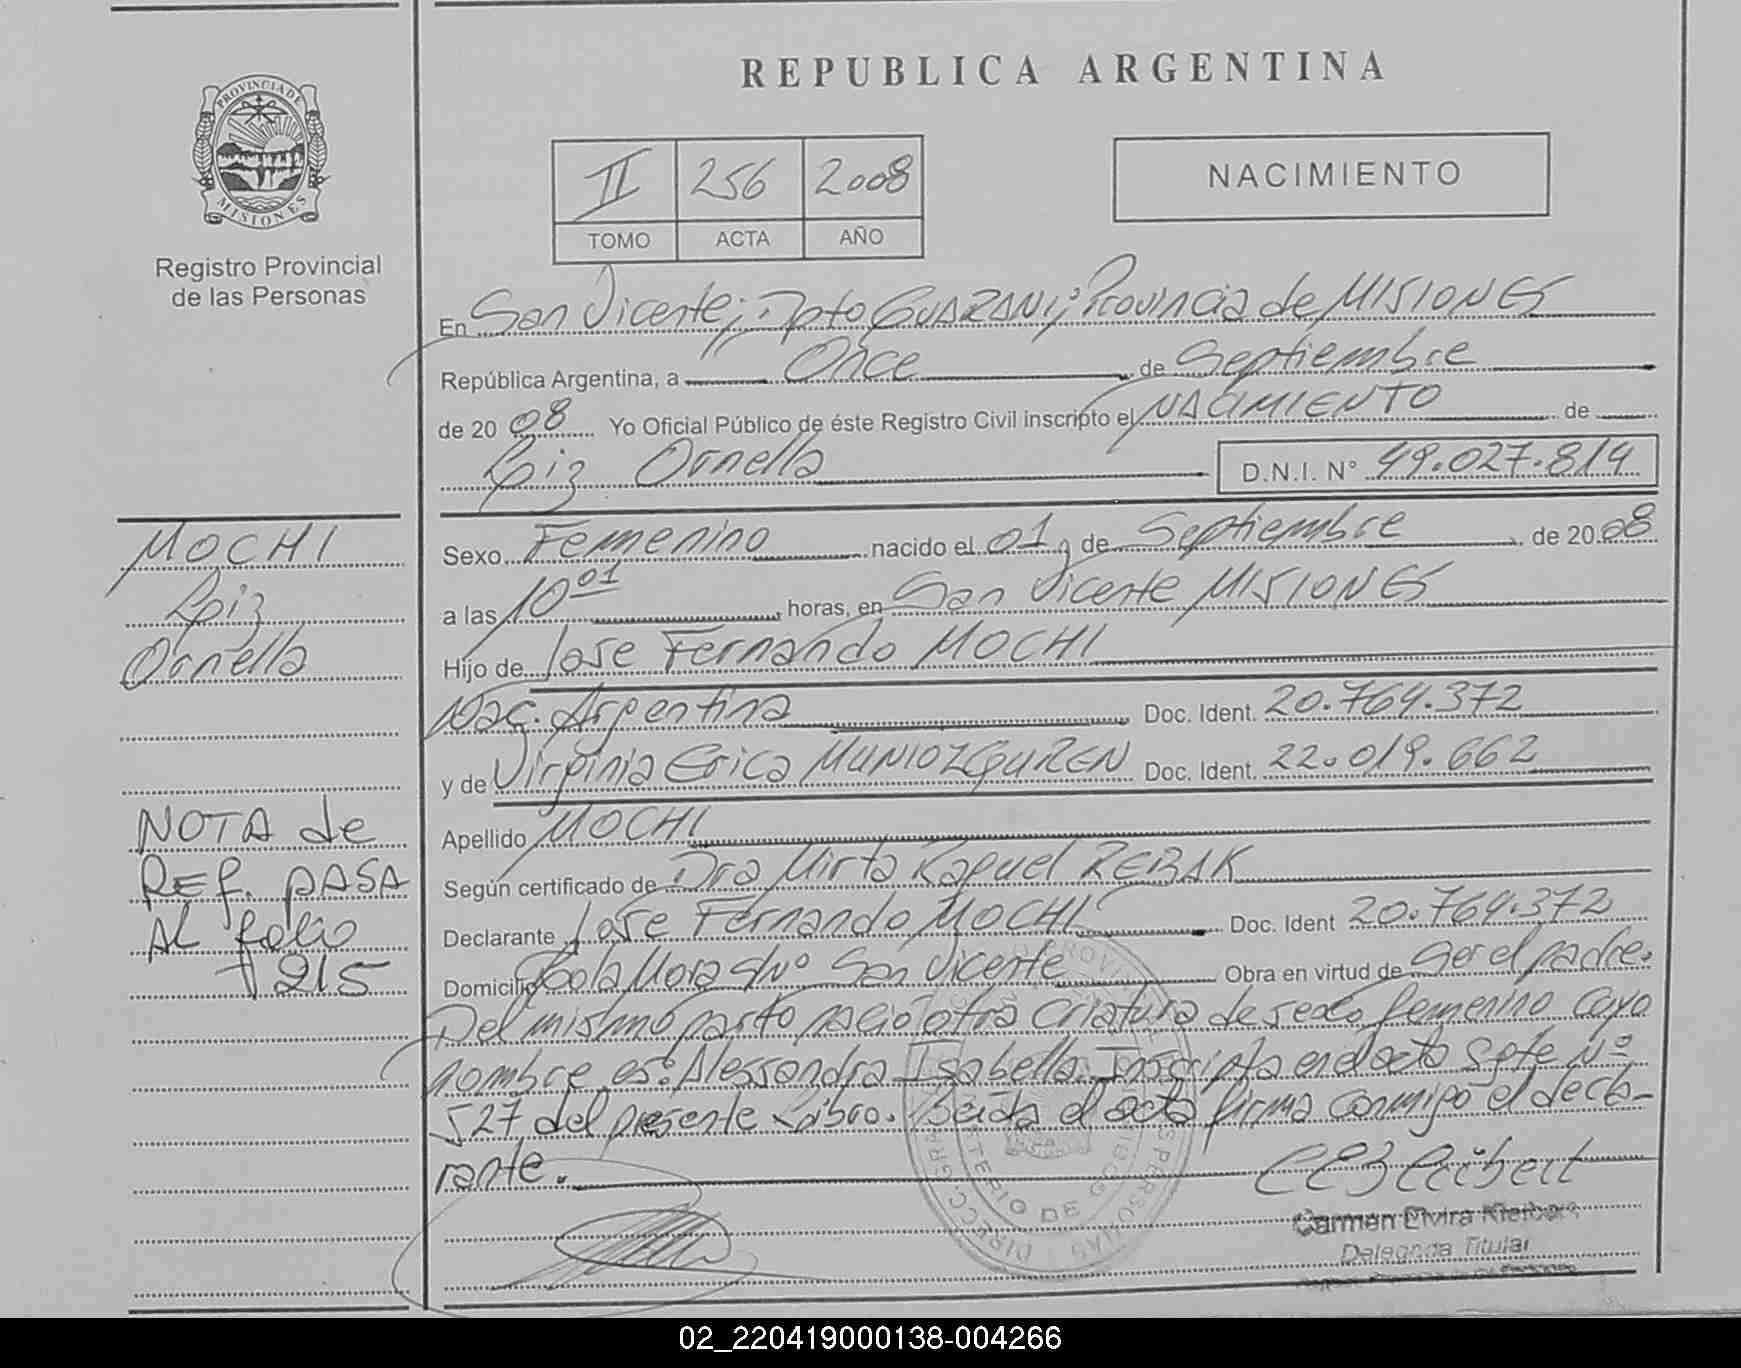 REPUBLICA ARGENTINA
PROVINCIA DE
MISIONES
Registro Provincial
de las Personas
II 256 2008
TOMO ACTA AÑO
NACIMIENTO
En San Vicente; Dpto GUARANI; Provincia de MISIONES
República Argentina, a Once de Septiembre
de 2008 Yo Oficial Público de éste Registro Civil inscripto el NACIMIENTO de
Ornella D.N.I. N° 49.027.814
MOCHI
Ornella
NOTA de
REF. PASA
AL folio
215
Sexo Femenino nacido el 01 de Septiembre de 2008
a las 10 01 horas, en San Vicente MISIONES
Hijo de Jose Fernando MOCHI
Nac. Argentina Doc. Ident. 20.764.372
y de Virginia Erica MUNIOZGUREN Doc. Ident. 22.019.662
Apellido MOCHI
Según certificado de Dra Mirta Raquel REBAK
Declarante Jose Fernando MOCHI Doc. Ident 20.764.372
Domicilio Mora S/Nº San Vicente Obra en virtud de ser el padre.
Del mismo parto nació otra criatura de sexo femenino cuyo
nombre es: Alessandra Isabella. Inscripta en el acta Spte Nº
527 del presente Libro. Leida el acta firma conmigo el decla-
rante.
Carmen Elvira
Delegada Titular
02_220419000138-004266